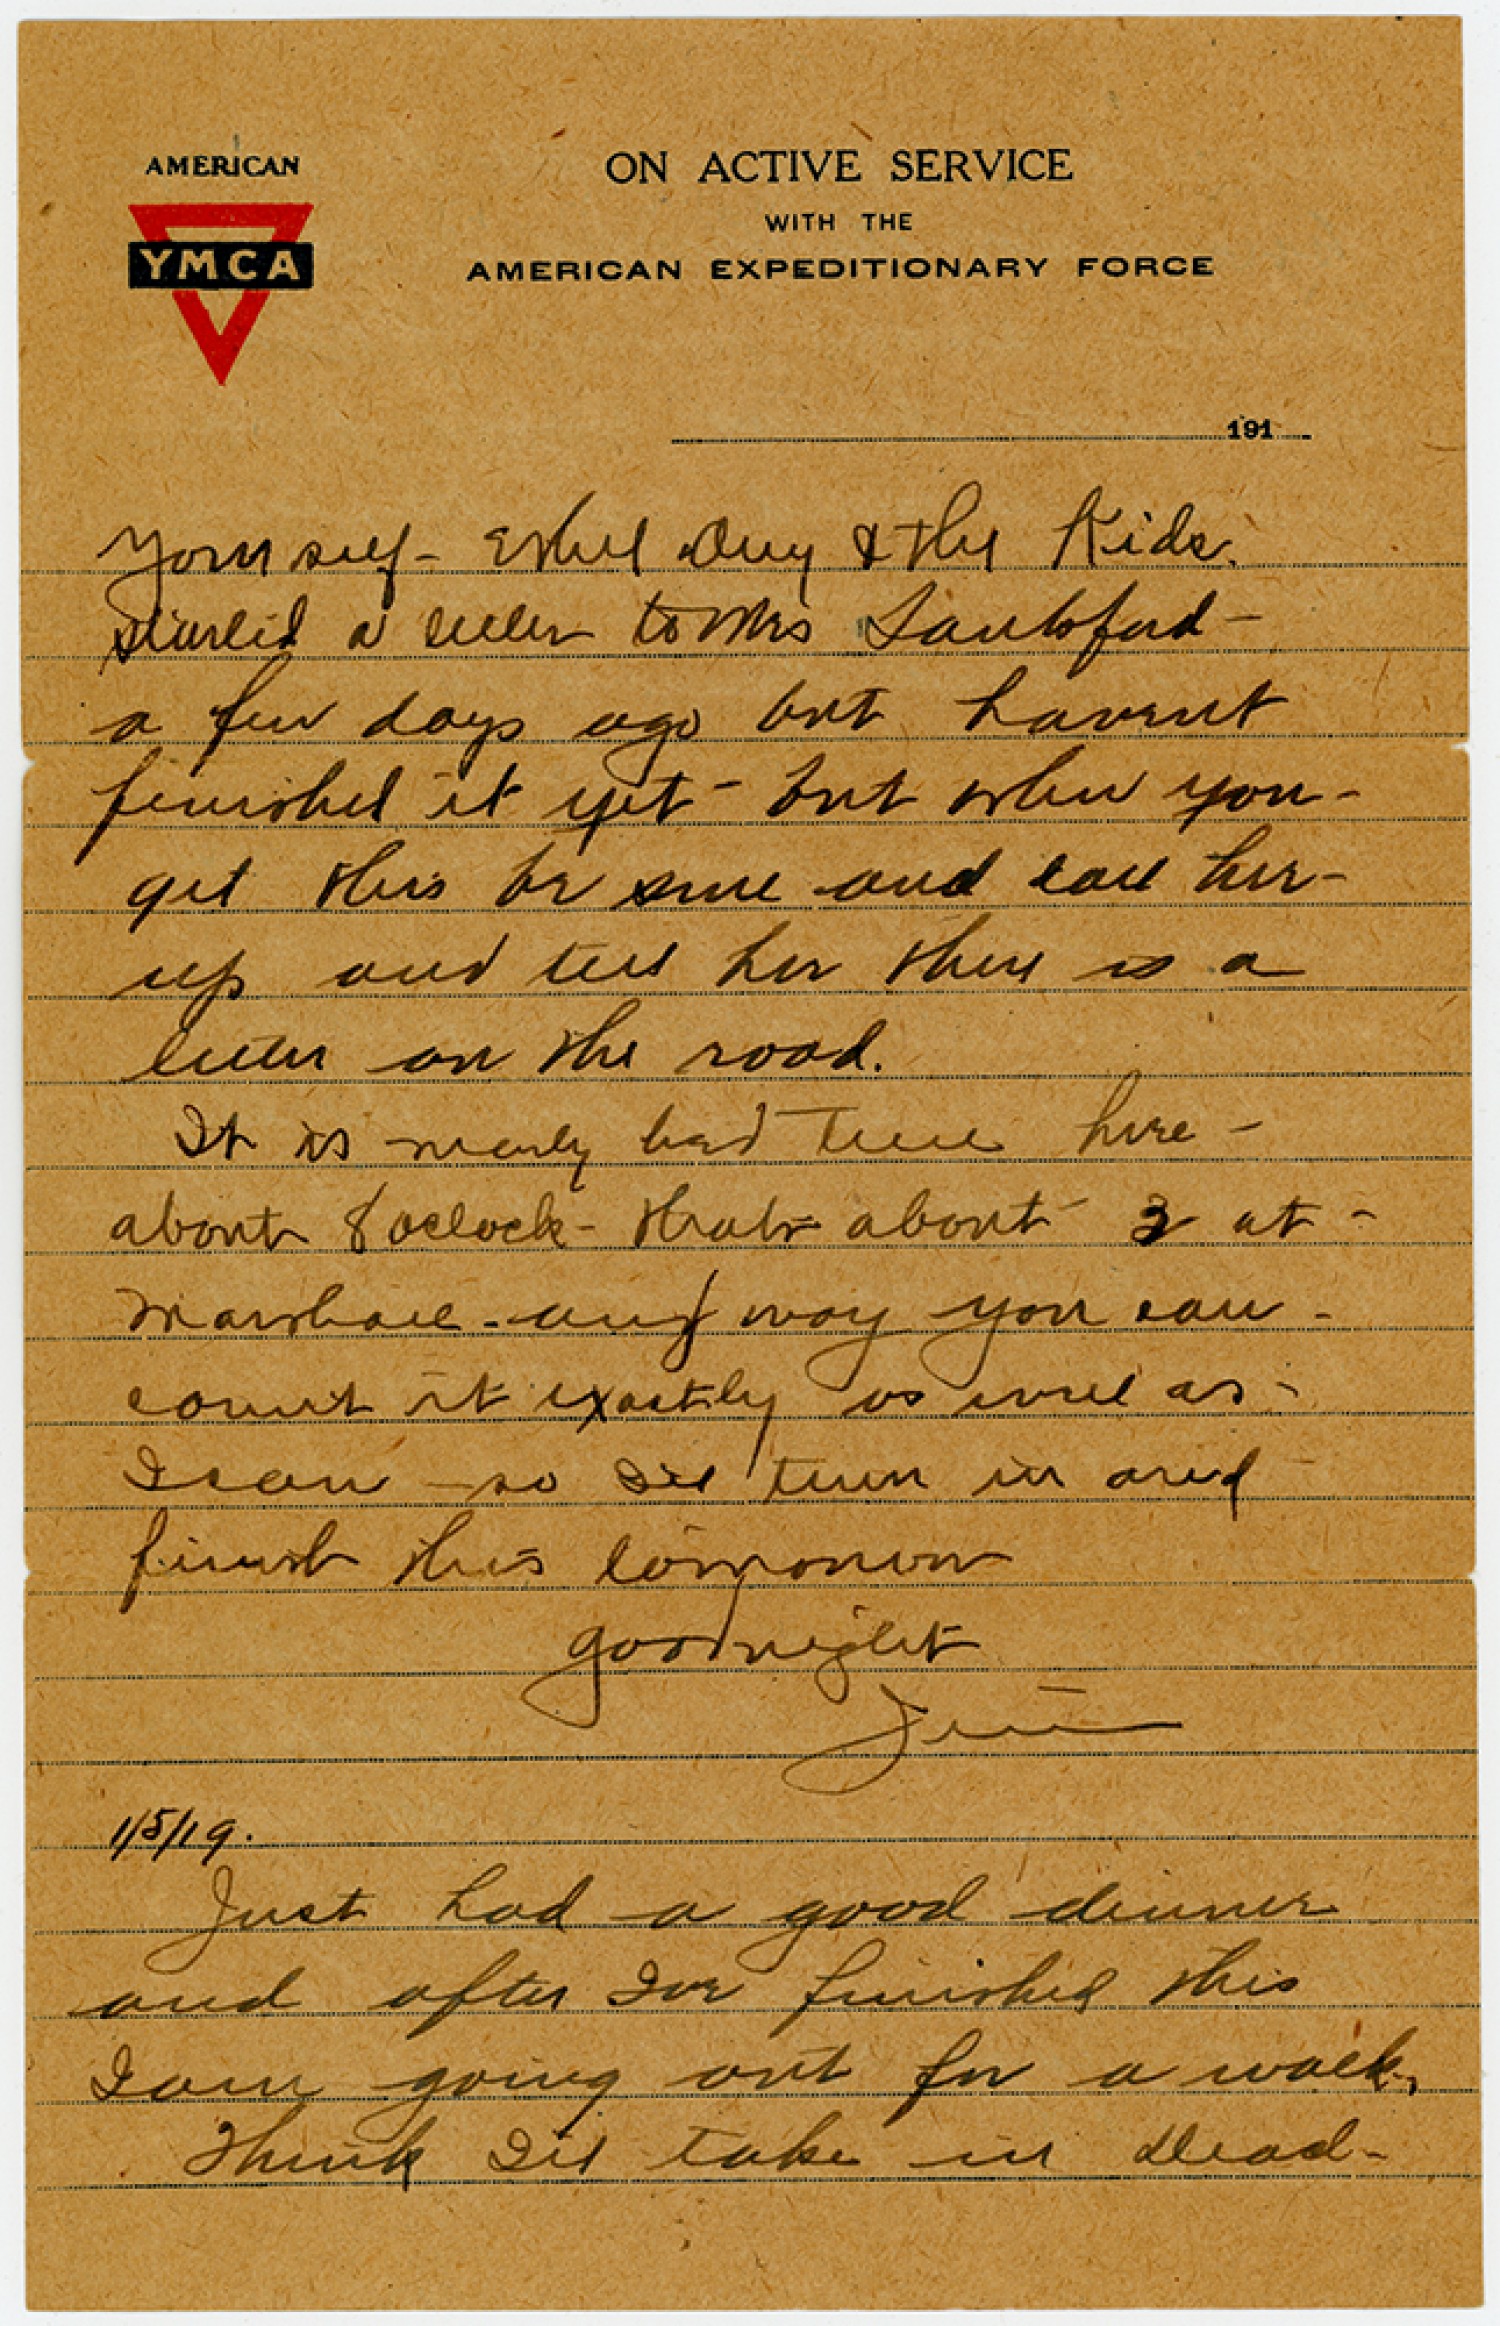 AMERICAN
YMCA
ON ACTIVE SERVICE
WITH THE
AMERICAN EXPEDITIONARY FORCE
191
Yourself - Ethel & the Kids.
Started a letter to Mrs
a few days ago but havent
finished it yet - but when you -
get this be sure and call her -
up and tell her there is a
letter on the road.
It is nearly bed time here -
about 8 oclock - thats about 2 at -
Marshall - any way you can -
count it exactly as well as -
I can - so Ill turn in and
finish this tomorrow
goodnight
Jim
1/5/19.
Just had a good dinner
and after Ive finished this
I am going out for a walk,
Think Ill take in Dead -